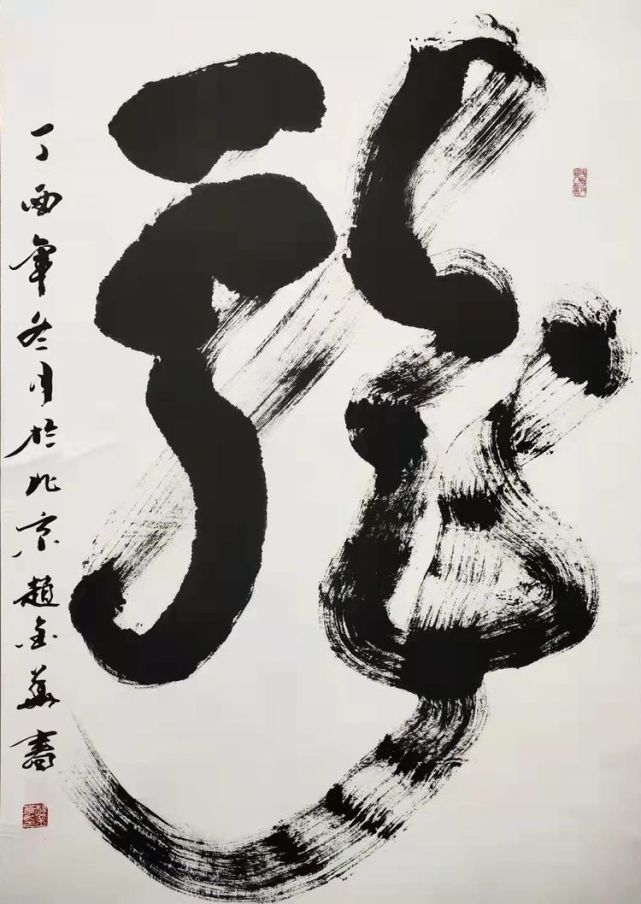 龍
丁酉年冬月於北京趙金華書